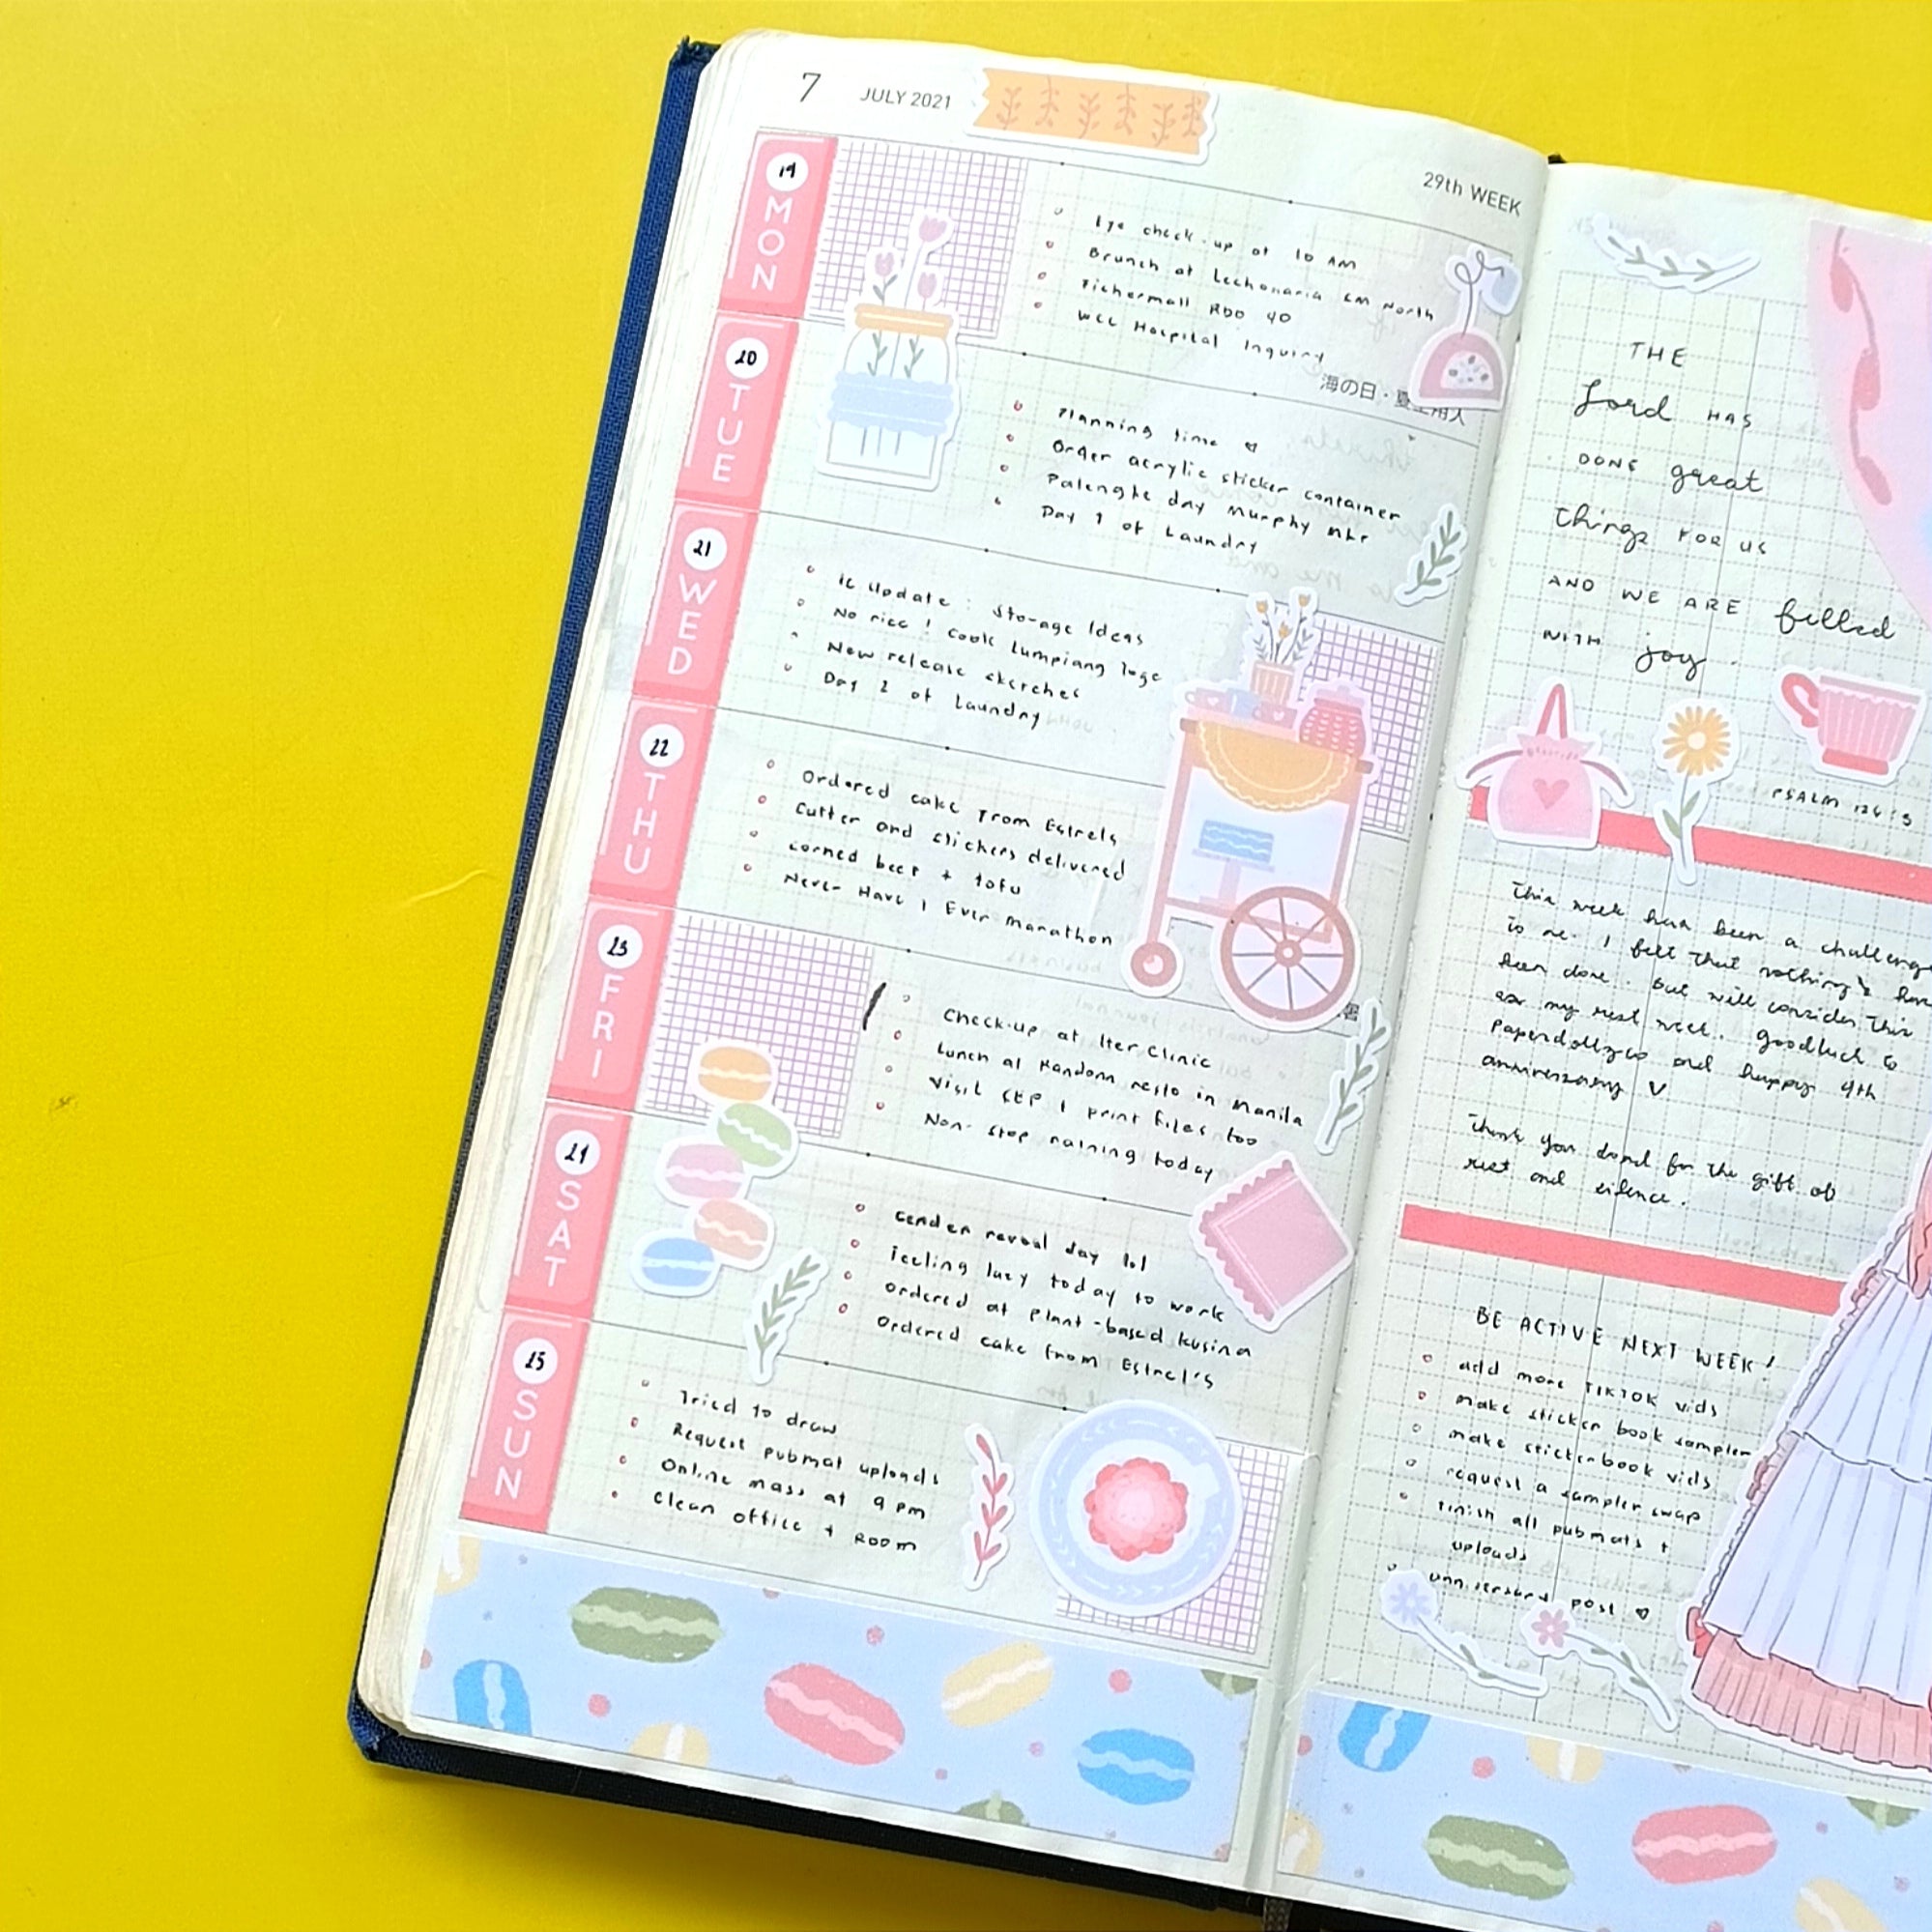 7 JULY 2021
29th WEEK
19 MON
Eye check-up at 10 AM
Brunch at Lechonaria SM North
Fishermall RDO 40
WCC Hospital Inquiry
海の日・夏土用入
20 TUE
Planning time
Order acrylic sticker container
Palengke day Murphy mkt
Day 1 of Laundry
21 WED
IG Update : Storage Ideas
No rice ! Cook Lumpiang Toge
New release sketches
Day 2 of Laundry
22 THU
Ordered cake from Estrels
Cutter and stickers delivered
Corned beef + tofu
Never Have I Ever Marathon
23 FRI
Check-up at Iter Clinic
Lunch at Random resto in Manila
Visit print files too
Non-stop raining today
24 SAT
Gender reveal day lol
Feeling lazy today to work
Ordered at plant-based kusina
Ordered cake from Estrel's
25 SUN
Tried to draw
Request pubmat uploads
Online mass at 9 pm
Clean office + Room
THE
Lord HAS
DONE great
things FOR US
AND WE ARE filled
WITH joy
PSALM 126:3
This week has been a
to me. I felt that nothing's
been done. But will consider this
as my rest week. Goodluck to
and happy 9th
anniversary
Thank you Lord for the gift of
rest and silence.
BE ACTIVE NEXT WEEK!
add more TIKTOK vids
make sticker book sampler
make stickerbook vids
request a sampler swap
finish all pubmats +
uploads
anniversary post